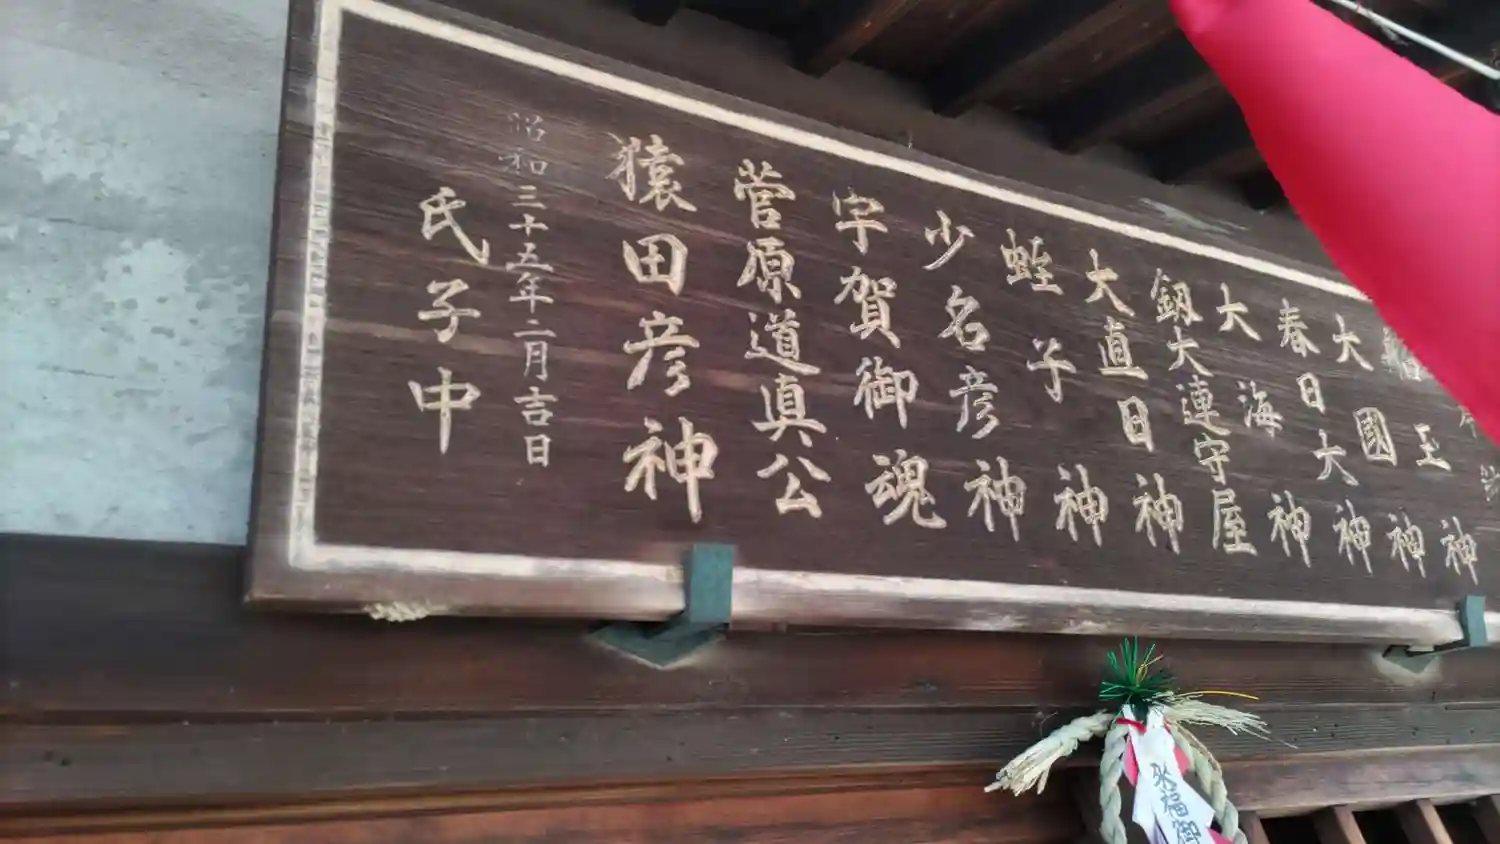 神
玉神
大國神
春日大神
大海神
釼大連守屋
大直日神
蛭子神
少名彦神
宇賀御魂
菅原道真公
猿田彦神
昭和三十五年二月吉日
氏子中
来福御